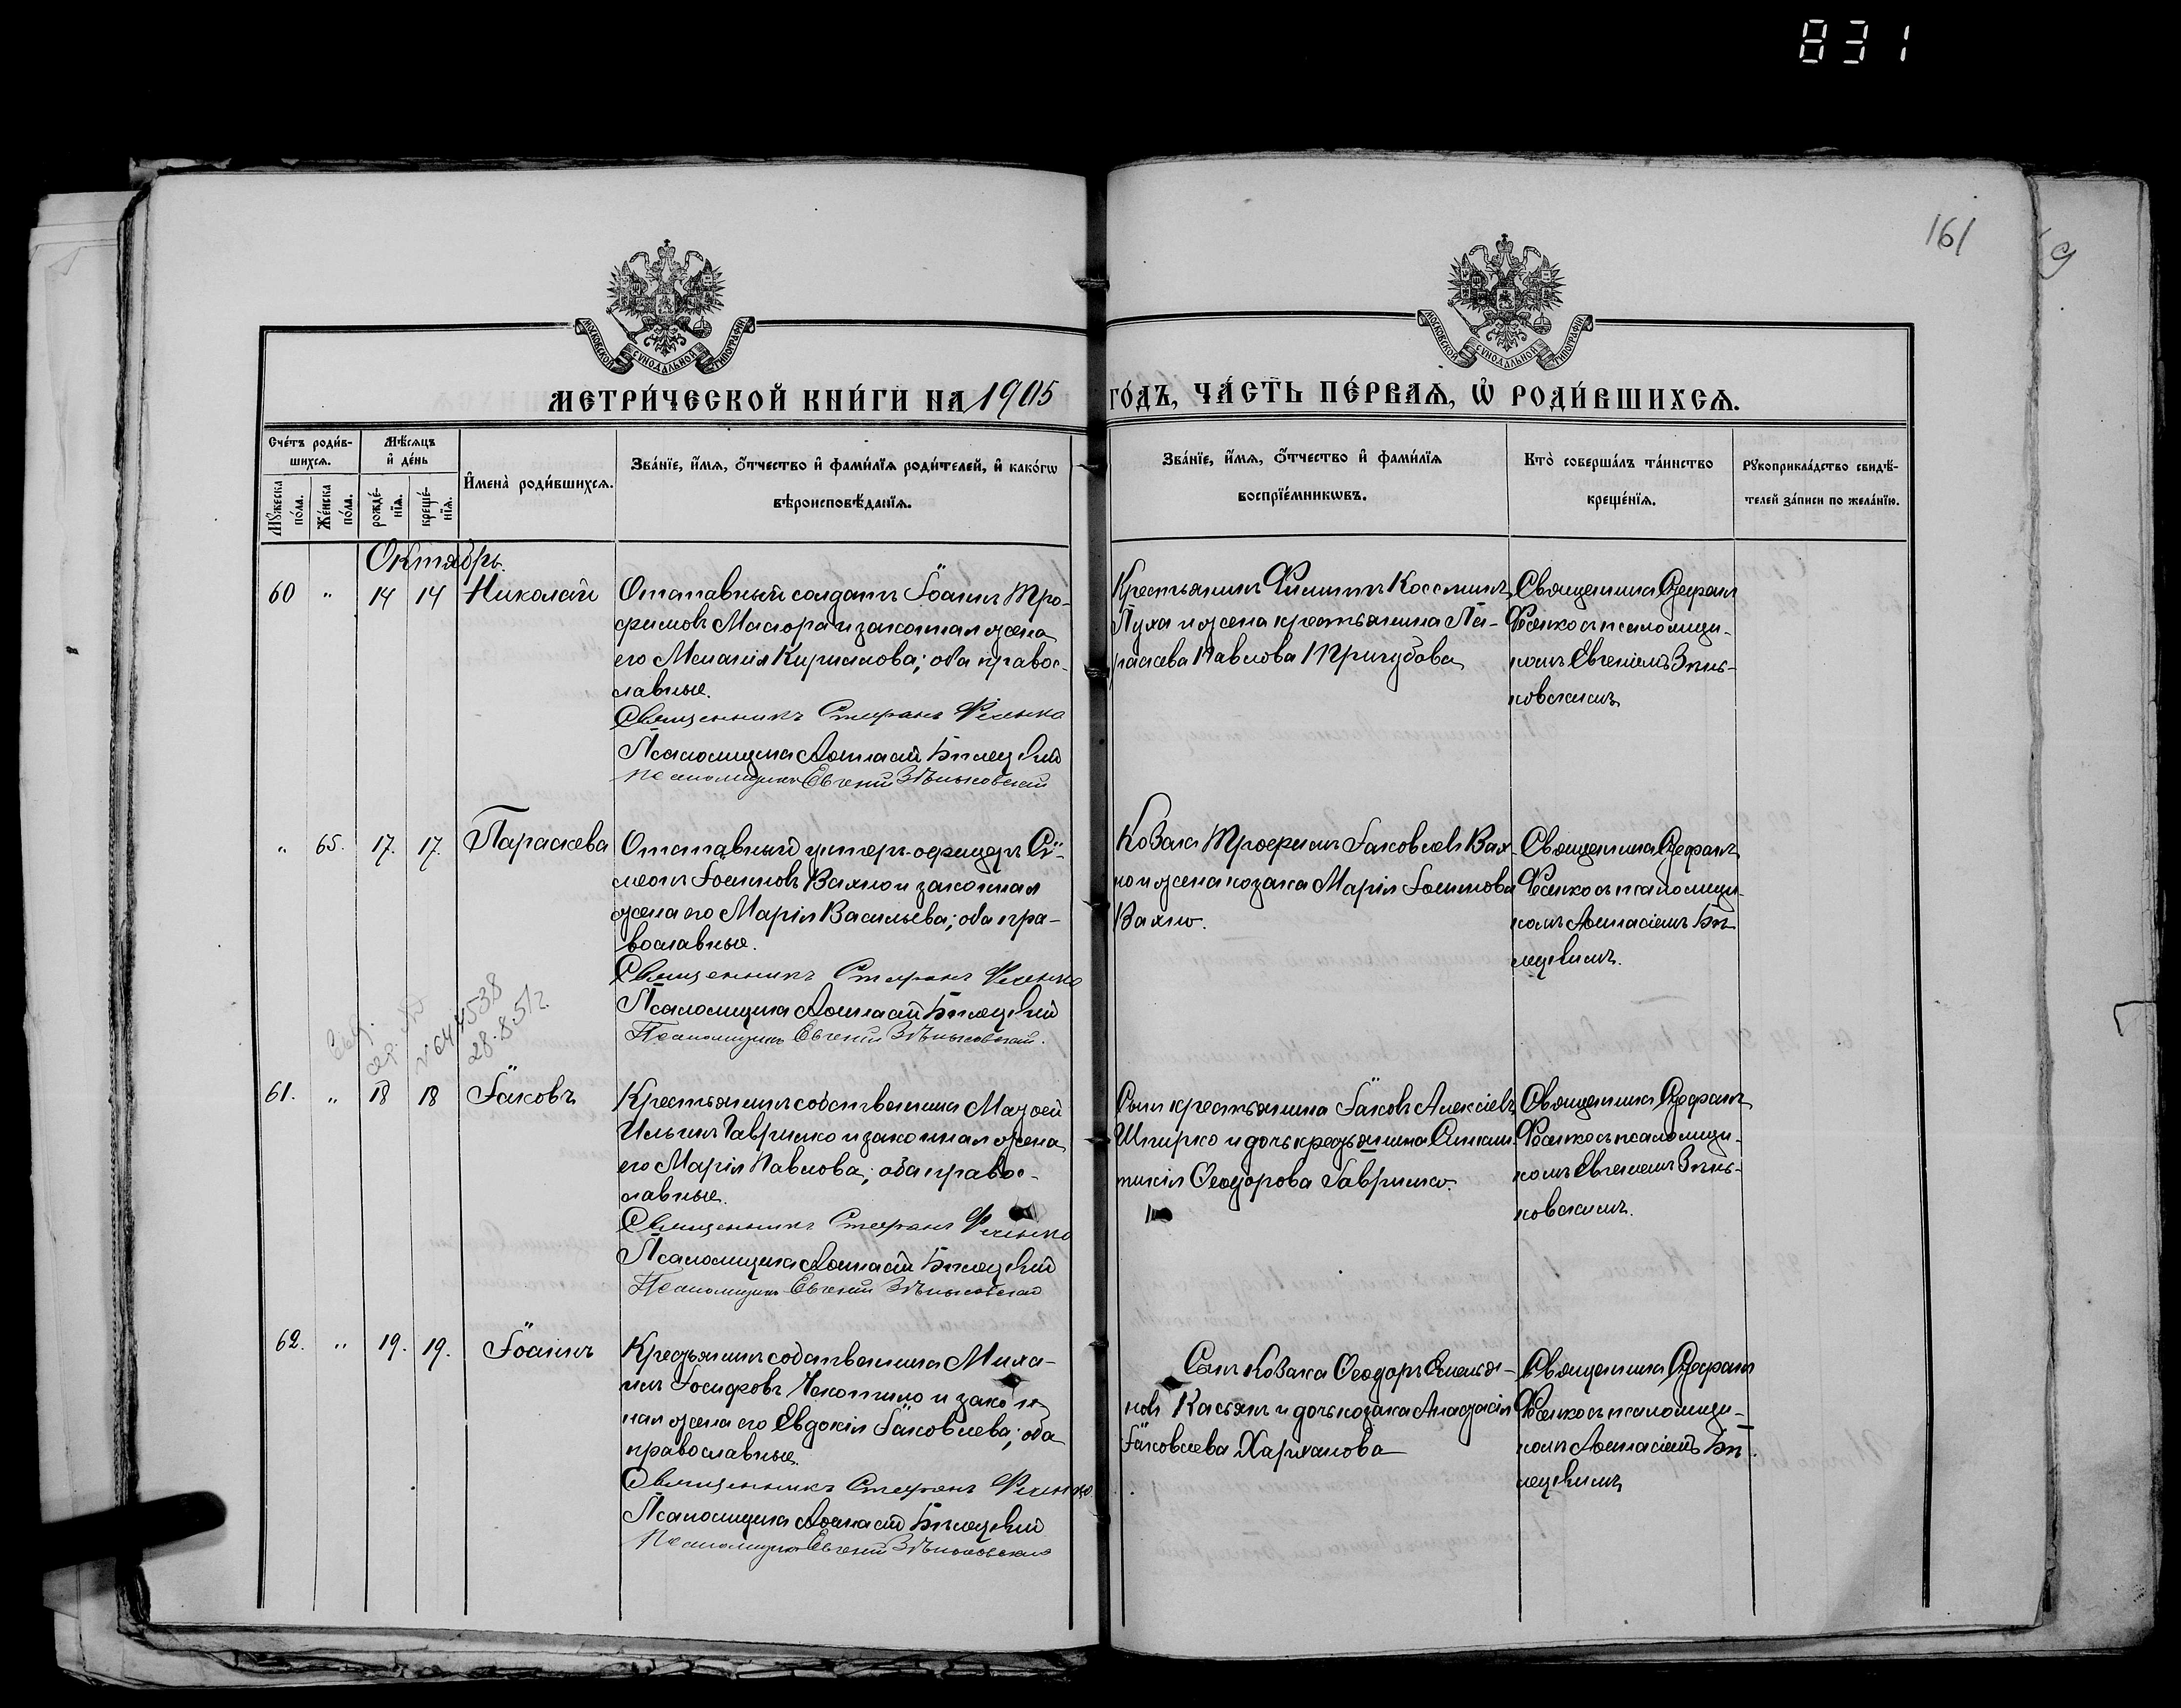 831
161
9
МОСКОВСКОЙ СѴНОДАЛЬНОЙ ТИПОГРАФІИ
МОСКОВСКОЙ СѴНОДАЛЬНОЙ ТИПОГРАФІИ
МЕТРИ́ЧЕСКОЙ КНИ́ГИ НА 1905 ГО́ДЪ, ЧА́СТЬ ПЕ́РВАѦ, Ѡ҆ РОДИ́ВШИХСѦ.
Сче́тъ роди́в-
шихсѧ.
Мꙋ́жеска по́ла.
Же́нска по́ла.
Мѣ́сѧцъ
и҆ де́нь
рожде́-
нїѧ.
креще́-
нїѧ.
И҆мена̀ роди́вшихсѧ.
Зва́нїе, и҆́мѧ, ѻ҆́тчество и҆ фами́лїѧ роди́телей, и҆ како́гѡ
вѣроисповѣ́данїѧ.
Зва́нїе, и҆́мѧ, ѻ҆́тчество и҆ фами́лїѧ
воспрїе́мникѡвъ.
Кто̀ соверша́лъ та́инство
креще́нїѧ.
Рꙋкоприкла́дство свидѣ́-
телей за́писи по жела́нїю.
Октябрь.
60 " 14 14 Николай
Отставный солдатъ Іоаннъ Тро-
фимовъ и законная жена
его Меланія Кириллова; оба правос-
лавные.
Священникъ Стефанъ Фесенко
Псаломщикъ Аѳанасій Бѣлецкій
Псаломщикъ Евгеній Зѣньковскій
Крестьянинъ Филиппъ Косминъ
Пуха и жена крестьянина Па-
раскева Павлова
Священникъ Стефанъ
Фесенко съ псаломщи-
комъ Евгеніемъ Зѣнь-
ковскимъ
" 65. 17. 17. Параскева
Отставный унтеръ-офицеръ Сѵ-
меонъ Іоанновъ Вахно и законная
жена его Марія Васильева; оба пра-
вославные.
Священникъ Стефанъ Фесенко
Псаломщикъ Аѳанасій Бѣлецкій
Псаломщикъ Евгеній Зѣньковскій.
Козакъ Трофимъ Іаковлевъ Вах-
но и жена козака Марія Іоаннова
Вахно.
Священникъ Стефанъ
Фесенко съ псаломщи-
комъ Аѳанасіемъ Бѣ-
лецкимъ.
28.8.51г.
61. " 18 18 Іаковъ
Крестьянинъ собственникъ Мазоей
Ильинъ Гавришко и законная жена
его Марія Павлова; оба правос-
лавные.
Священникъ Стефанъ Фесенко
Псаломщикъ Аѳанасій Бѣлецкій
Псаломщикъ Евгеній Зѣньковскій
Сынъ крестьянина Іаковъ Алексіевъ
Шпирко и дочь крестьянина Синкли-
тикія Ѳеодорова Гавришко.
Священникъ Стефанъ
Фесенко съ псаломщи-
комъ Евгеніемъ Зѣнь-
ковскимъ.
62. " 19. 19. Іоаннъ
Крестьянинъ собственникъ Миха-
илъ Іосифовъ и закон-
ная жена его Евдокія Іаковлева; оба
православные.
Священникъ Стефанъ Фесенко
Псаломщикъ Аѳанасій Бѣлецкій
Псаломщикъ Евгеній Зѣньковскій
Сынъ козака Ѳеодоръ Емелья-
новъ Касьянъ и дочь козака Анастасія
Іаковлева Харланова
Священникъ Стефанъ
Фесенко съ псаломщи-
комъ Аѳанасіемъ Бѣ-
лецкимъ